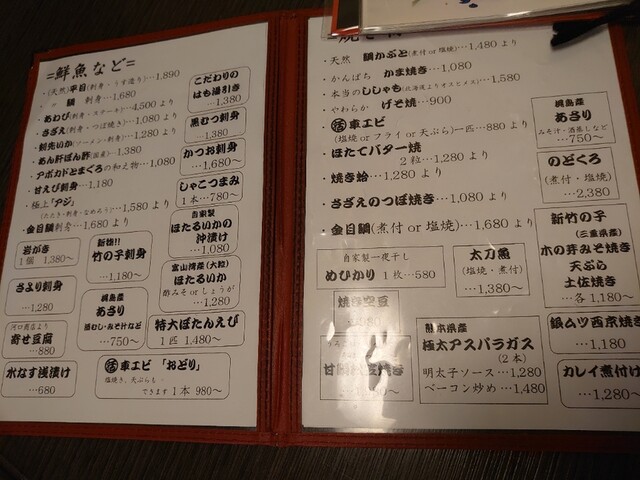 =鮮魚など=
・(天然)平目(刺身・うす造り)…1,890
〃 〃 鯛 刺身…1,680
・あわび(刺身・ステーキ)…4,500より
・さざえ(刺身・つぼ焼き)…1,080
・剣先いか(ソーメン・刺身)…1,280より
・あん肝ぽん酢(国産)…1,380
・アボカドとまぐろの和え物…1,080
・甘えび刺身…1,180
・極上「アジ」
(たたき・刺身・なめろう)…1,580より
・金目鯛刺身…1,680より
こだわりの
はも湯引き
…1,380
黒むつ刺身
…1,380
かつお刺身
…1,680〜
しゃこつまみ
1本…780〜
自家製
ほたるいかの
沖漬け
…1,080
岩がき
1個 1,380〜
新物!!
竹の子刺身
…1,180〜
富山湾産(大粒)
ほたるいか
酢みそorしょうが
…1,280
さより刺身
…1,280
桃島産
あさり
酒むし・みそ汁など
…750〜
特大ぼたんえび
1匹 1,480〜
河口商店より
寄せ豆腐
…880
水なす浅漬け
…680
活車エビ「おどり」
塩焼き、天ぷらも…
できます 1本 980〜
・天然 鯛かぶと(煮付or塩焼)…1,480より
・かんぱち かま焼き…1,080
・本当のししゃも(北海道よりオスとメス)…1,580
・やわらか げそ焼…900
・活車エビ
(塩焼orフライor天ぷら)一匹…880より
・ほたてバター焼
2粒…1,280より
・焼き蛤…1,280より
・さざえのつぼ焼き…1,080
・金目鯛(煮付or塩焼)…1,680より
桃島産
あさり
みそ汁・酒蒸しなど
…750〜
のどくろ
(煮付・塩焼)
…2,380
自家製一夜干し
めひかり 1枚…580
太刀魚
(塩焼・煮付)
…1,380〜
新竹の子
(三重県産)
木の芽みそ焼き
天ぷら
土佐焼き
…各1,180〜
焼き空豆
熊本県産
極太アスパラガス
(2本)
明太子ソース…1,280
ベーコン炒め…1,480
銀ムツ西京焼き
…1,180
カレイ煮付け
…1,280〜